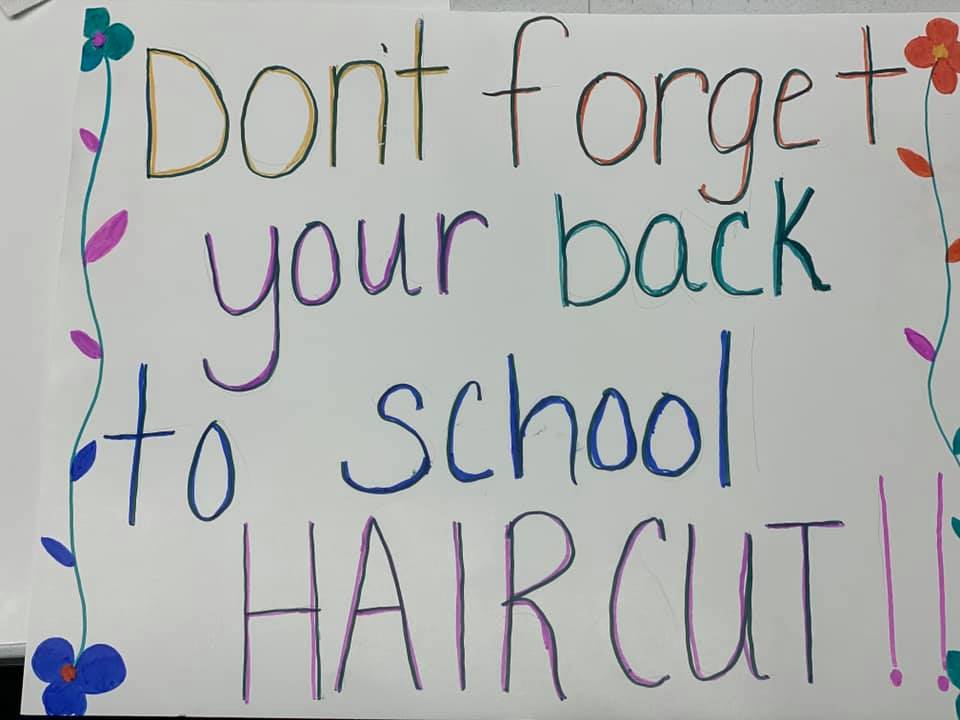 Don't forget
your back
to school
HAIRCUT!!